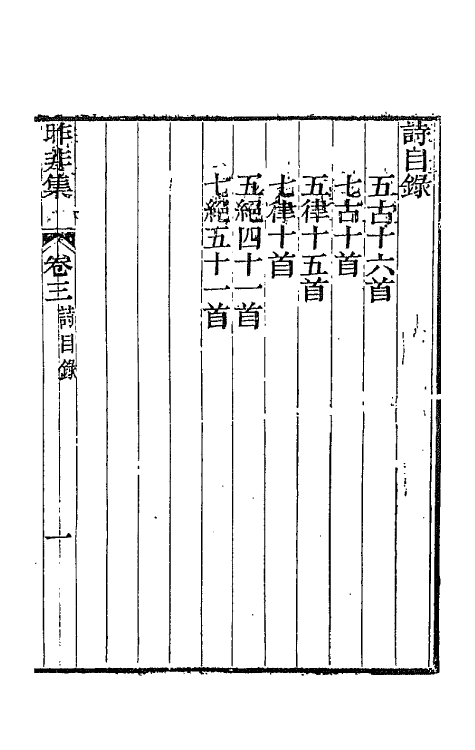 詩目錄
五古十六首
七古十首
五律十五首
七律十首
五絕四十一首
七絕五十一首
昨非集
卷三 詩目錄
一